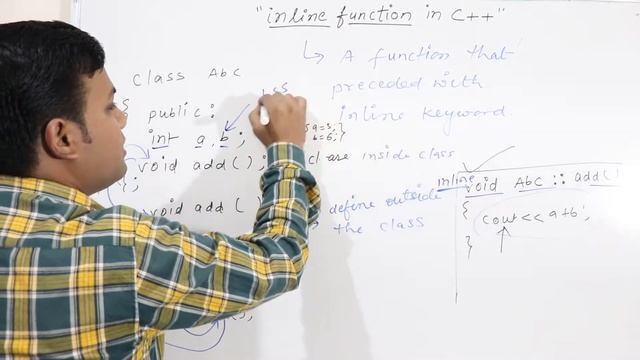 "inline function in C++"
↳ A function that
preceded with
inline keyword.
Class Abc
public:
int a, b;
a=3;
b=6; }
void add();
clare inside class
};
void add()
define outside
the class
inline
void Abc :: add()
{
cout<<a+b;
}